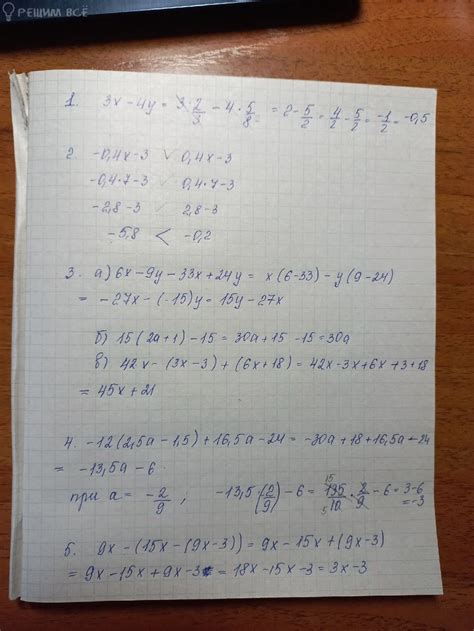 РЕШИМ ВСЁ
1. 3x - 4y = 3·2/3 - 4·5/8 = 2 - 5/2 = 4/2 - 5/2 = -1/2 = -0,5
2. -0,4x-3 ∨ 0,4x-3
-0,4·7-3 ∨ 0,4·7-3
-2,8-3 ∨ 2,8-3
-5,8 < -0,2
3. а) 6x-9y-33x+24y = x(6-33)-y(9-24)
= -27x-(-15)y = 15y-27x
б) 15(2a+1)-15=30a+15-15=30a
в) 42x-(3x-3)+(6x+18)=42x-3x+6x+3+18
= 45x+21
4. -12(2,5a-1,5)+16,5a-24= -30a+18+16,5a-24
= -13,5a-6
при a= -2/9, -13,5(-2/9)-6 = 135/10 · 2/9 -6 = 3-6
= -3
5. 9x-(15x-(9x-3))=9x-15x+(9x-3)
= 9x-15x+9x-3 = 18x-15x-3=3x-3